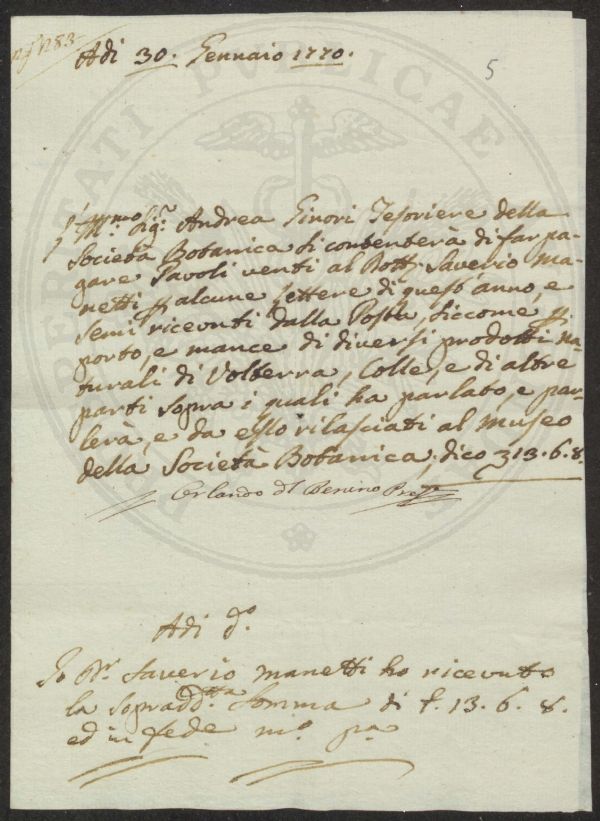 nº 83
Adi 30. Gennaio 1770.
5
L'Ill.mo Sig.r Andrea Ginori Tesoriere della
Società Botanica si contenterà di far pa-
gare Pavoli venti al Dott. Saverio Ma-
netti p alcune Lettere di quest'anno, e
semi ricevuti dalla Posta, siccome p
porto, e mance di diversi prodotti na-
turali di Volterra, Colle, e di altre
parti sopra i quali ha parlato, e par-
lerà, e da esso rilasciati al museo
della Società Botanica, dico £ 13.6.8.
Orlando del Benino Pres.
Adi d.o
Io D.r Saverio Manetti ho ricevuto
la sopradd.tta Somma di £. 13.6.8.
ed in fede m.o p.a
PROSPERITATI PUBLICAE